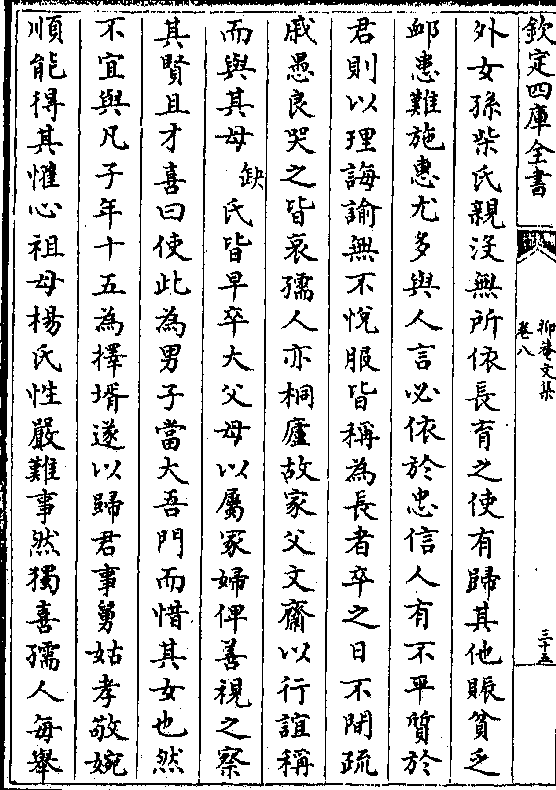 欽定四庫全書
抑菴文集
卷八
三十五
外女孫柴氏親沒無所依長育之使有歸其他賑貧乏
䘏患難施惠尤多與人言必依於忠信人有不平質於
君則以理誨諭無不悅服皆稱為長者卒之日不閒疏
戚愚良哭之皆哀孺人亦桐廬故家父文齋以行誼稱
而與其母缺氏皆早卒大父母以屬冢婦俾善視之察
其賢且才喜曰使此為男子當大吾門而惜其女也然
不宜與凡子年十五為擇壻遂以歸君事舅姑孝敬婉
順能得其懽心祖母楊氏性嚴難事然獨喜孺人每舉